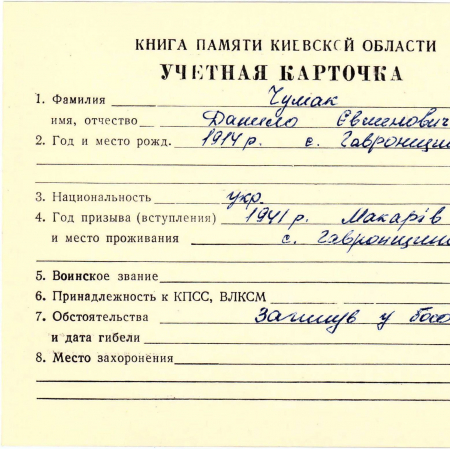 КНИГА ПАМЯТИ КИЕВСКОЙ ОБЛАСТИ
УЧЕТНАЯ КАРТОЧКА
1. Фамилия Чумак
имя, отчество Данило Євменович
2. Год и место рожд. 1914 р. с. Гавронщин
3. Национальность укр.
4. Год призыва (вступления) 1941 р. Макарів
и место проживания с. Гавронщин
5. Воинское звание
6. Принадлежность к КПСС, ВЛКСМ
7. Обстоятельства Загинув у
и дата гибели
8. Место захоронения